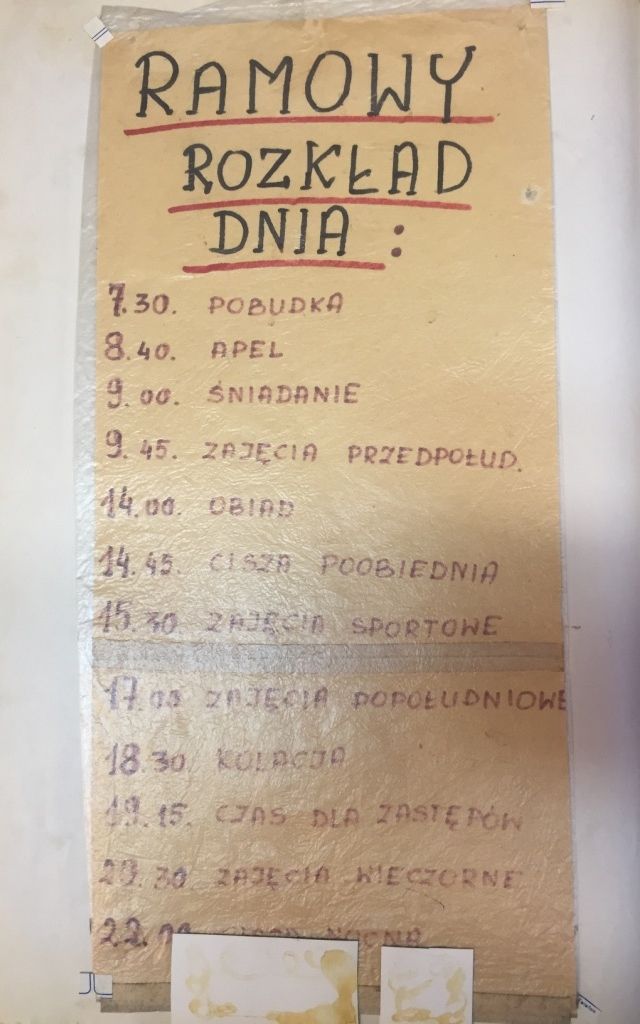 RAMOWY
ROZKŁAD
DNIA :
7.30. POBUDKA
8.40. APEL
9.00. ŚNIADANIE
9.45. ZAJĘCIA PRZEDPOŁUD.
14.00. OBIAD
14.45. CISZA POOBIEDNIA
15.30 ZAJĘCIA SPORTOWE
17.00 ZAJĘCIA POPOŁUDNIOWE
18.30. KOLACJA
19.15. CZAS DLA ZASTĘPÓW
20.30 ZAJĘCIA WIECZORNE
22.00 CISZA NOCNA